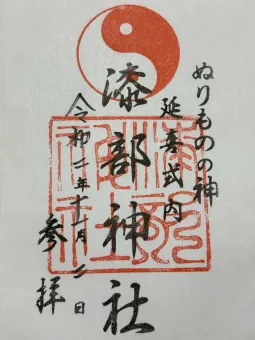 ぬりものの神
延喜式内
漆部神社
令和 年十 月二日
参拝
漆部
神社